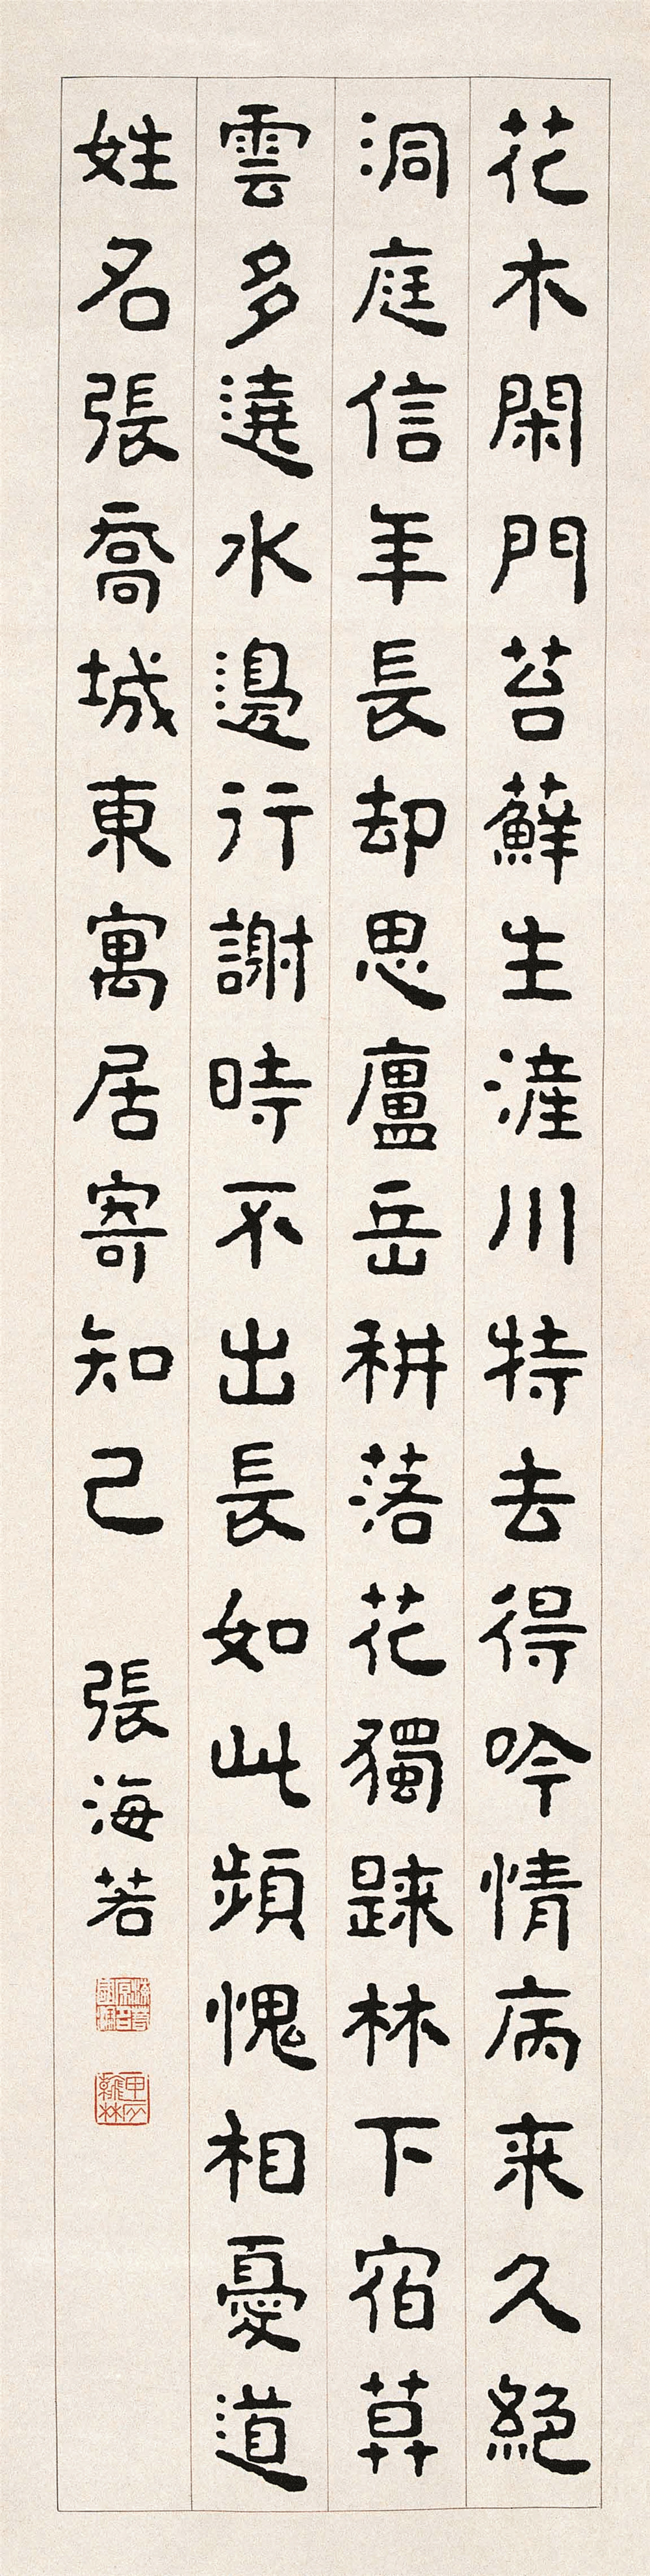 花木閑門苔蘚生滻川特去得吟情病来久絕
洞庭信年長却思廬岳耕落花獨歸林下宿莫
雲多遶水邊行謝時不出長如此頻愧相憂道
姓名張喬城東寓居寄知己
張海若
甲辰翰林